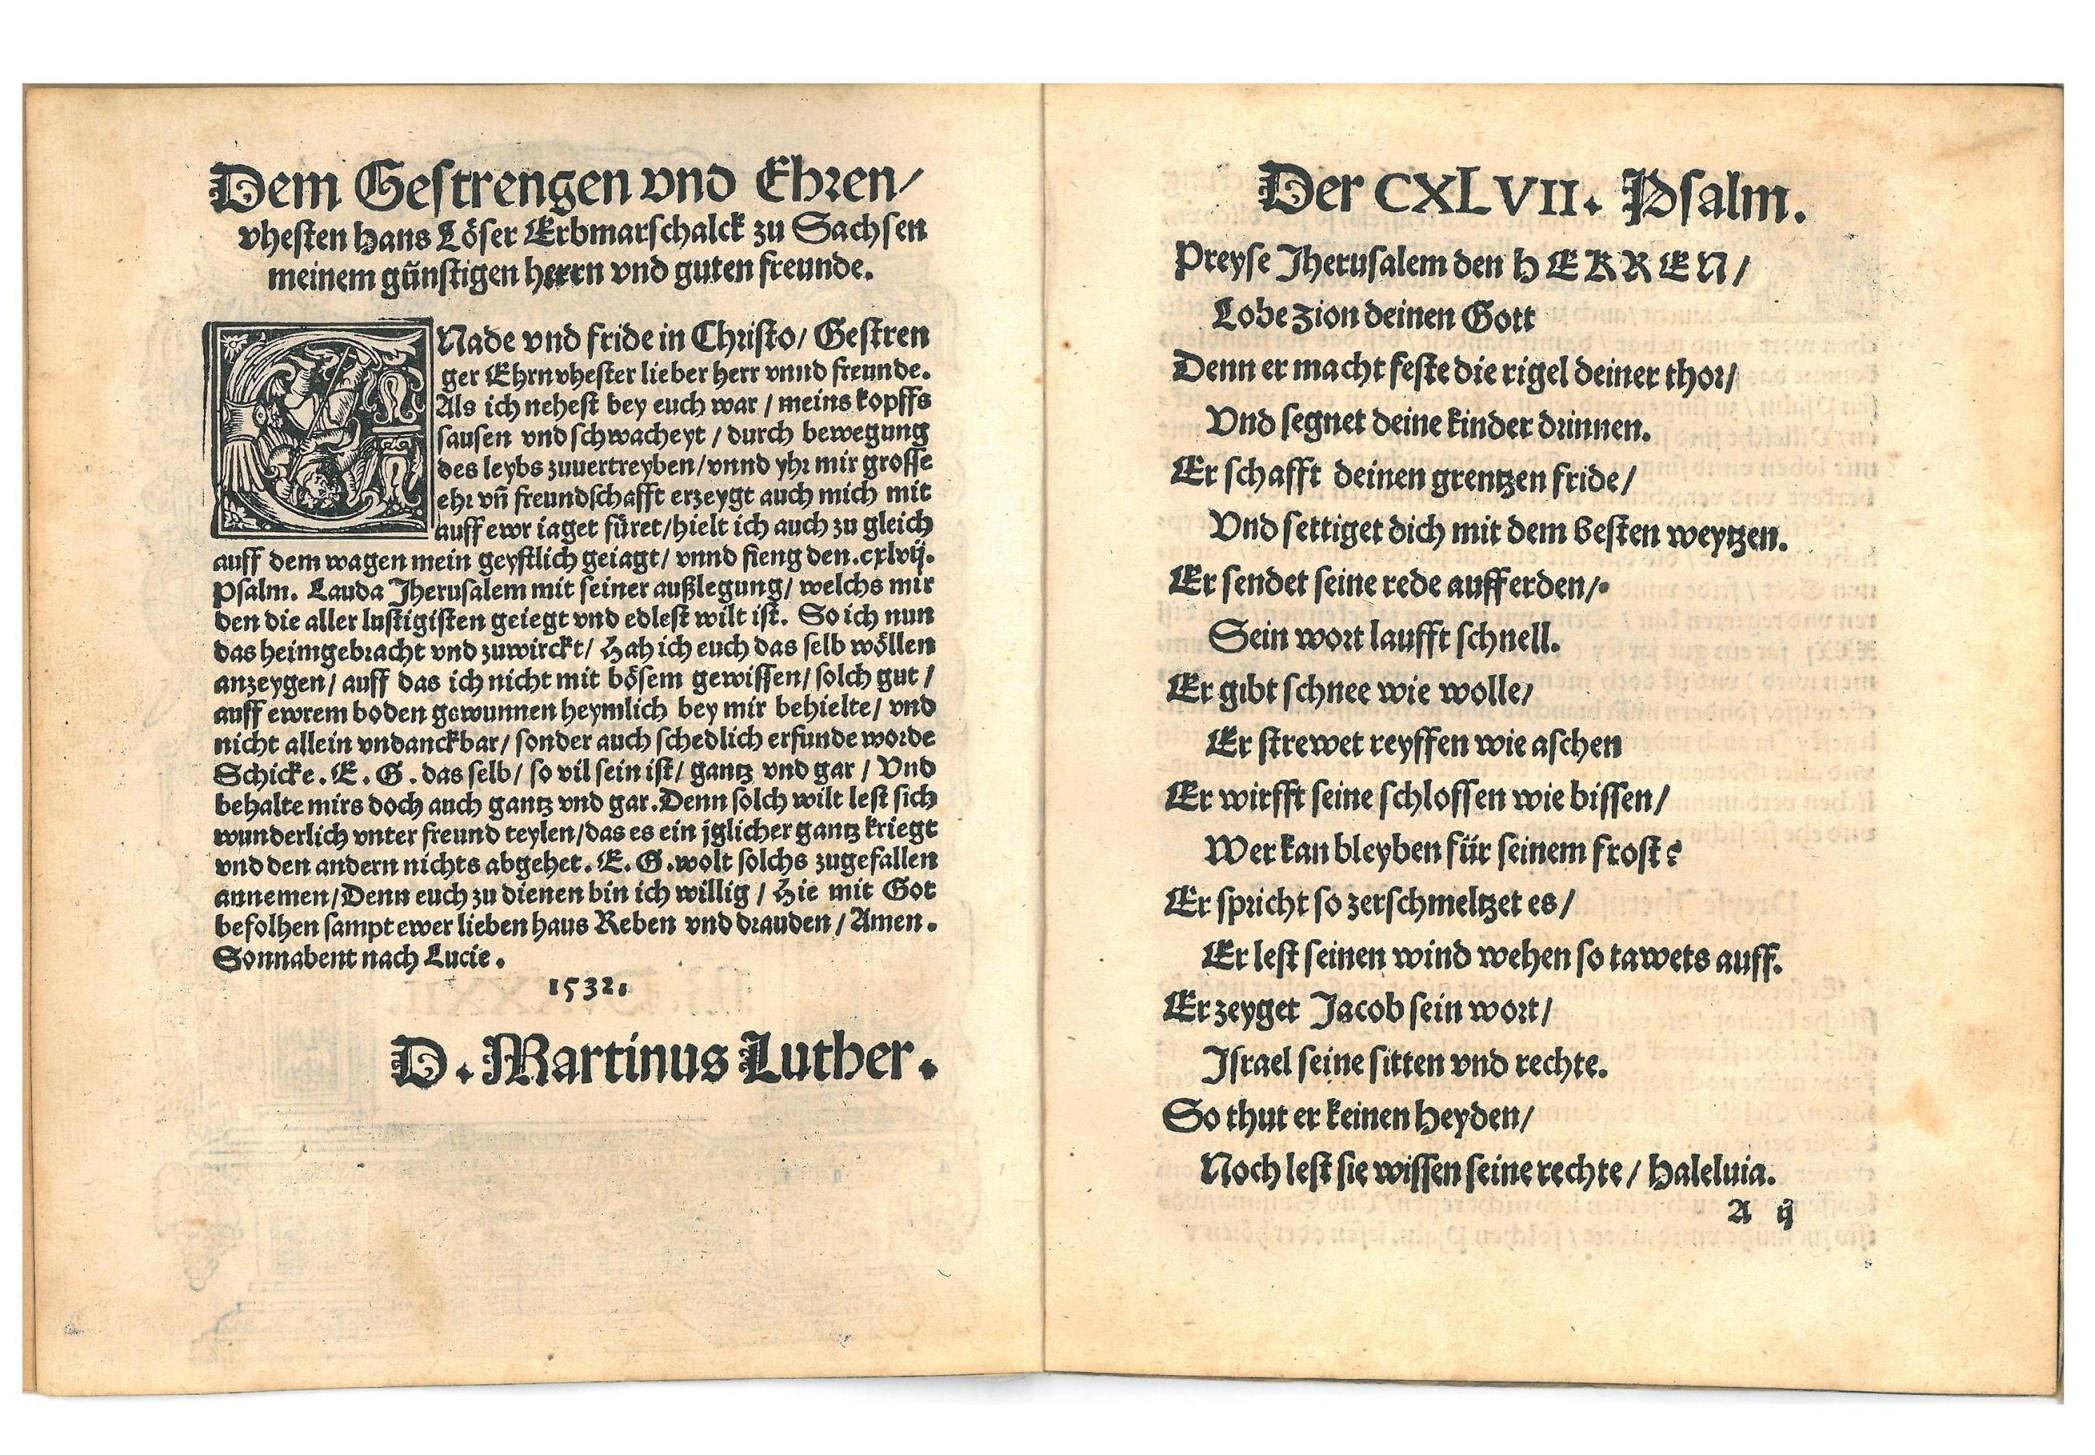 Dem Geſtrengen vnd Ehren/
vheſten Hans Löſer Erbmarſchalck zu Sachſen
meinem günſtigen herrn vnd guten freunde.
GNade vnd fride in Chriſto/ Geſtren
ger Ehrnvheſter lieber herr vnnd freunde.
Als ich neheſt bey euch war / meins kopffs
ſauſen vnd ſchwacheyt / durch bewegung
des leybs zuuertreyben/vnnd yhr mir groſſe
ehr vñ freundſchafft erzeygt auch mich mit
auff ewr iaget füret/hielt ich auch zu gleich
auff dem wagen mein geyſtlich geiagt/ vnnd fieng den.cxlvij.
Pſalm. Lauda Jheruſalem mit ſeiner außlegung/ welchs mir
den die aller luſtigiſten geiegt vnd edleſt wilt iſt. So ich nun
das heimgebracht vnd zuwirckt/ Hab ich euch das ſelb wöllen
anzeygen/ auff das ich nicht mit böſem gewiſſen/ ſolch gut /
auff ewrem boden gewunnen heymlich bey mir behielte/ vnd
nicht allein vndanckbar/ ſonder auch ſchedlich erfunde worde
Schicke. E. G. das ſelb/ ſo vil ſein iſt/ gantz vnd gar / Vnd
behalte mirs doch auch gantz vnd gar. Denn ſolch wilt leſt ſich
wunderlich vnter freund teylen/das es ein jglicher gantz kriegt
vnd den andern nichts abgehet. E. G. wolt ſolchs zugefallen
annemen/Denn euch zu dienen bin ich willig / Hie mit Got
befolhen ſampt ewer lieben haus Reben vnd drauden / Amen.
Sonnabent nach Lucie.
1532.
D. Martinus Luther.
Der CXLVII. Pſalm.
Preyſe Jheruſalem den HERREN/
Lobe Zion deinen Gott
Denn er macht feſte die rigel deiner thor/
Vnd ſegnet deine kinder drinnen.
Er ſchafft deinen grentzen fride/
Vnd ſettiget dich mit dem beſten weytzen.
Er ſendet ſeine rede auff erden/
Sein wort laufft ſchnell.
Er gibt ſchnee wie wolle/
Er ſtrewet reyffen wie aſchen
Er wirfft ſeine ſchloſſen wie biſſen/
Wer kan bleyben für ſeinem froſt?
Er ſpricht ſo zerſchmeltzet es/
Er leſt ſeinen wind wehen ſo tawets auff.
Er zeyget Jacob ſein wort/
Iſrael ſeine ſitten vnd rechte.
So thut er keinen Heyden/
Noch leſt ſie wiſſen ſeine rechte/ Haleluia.
A ij